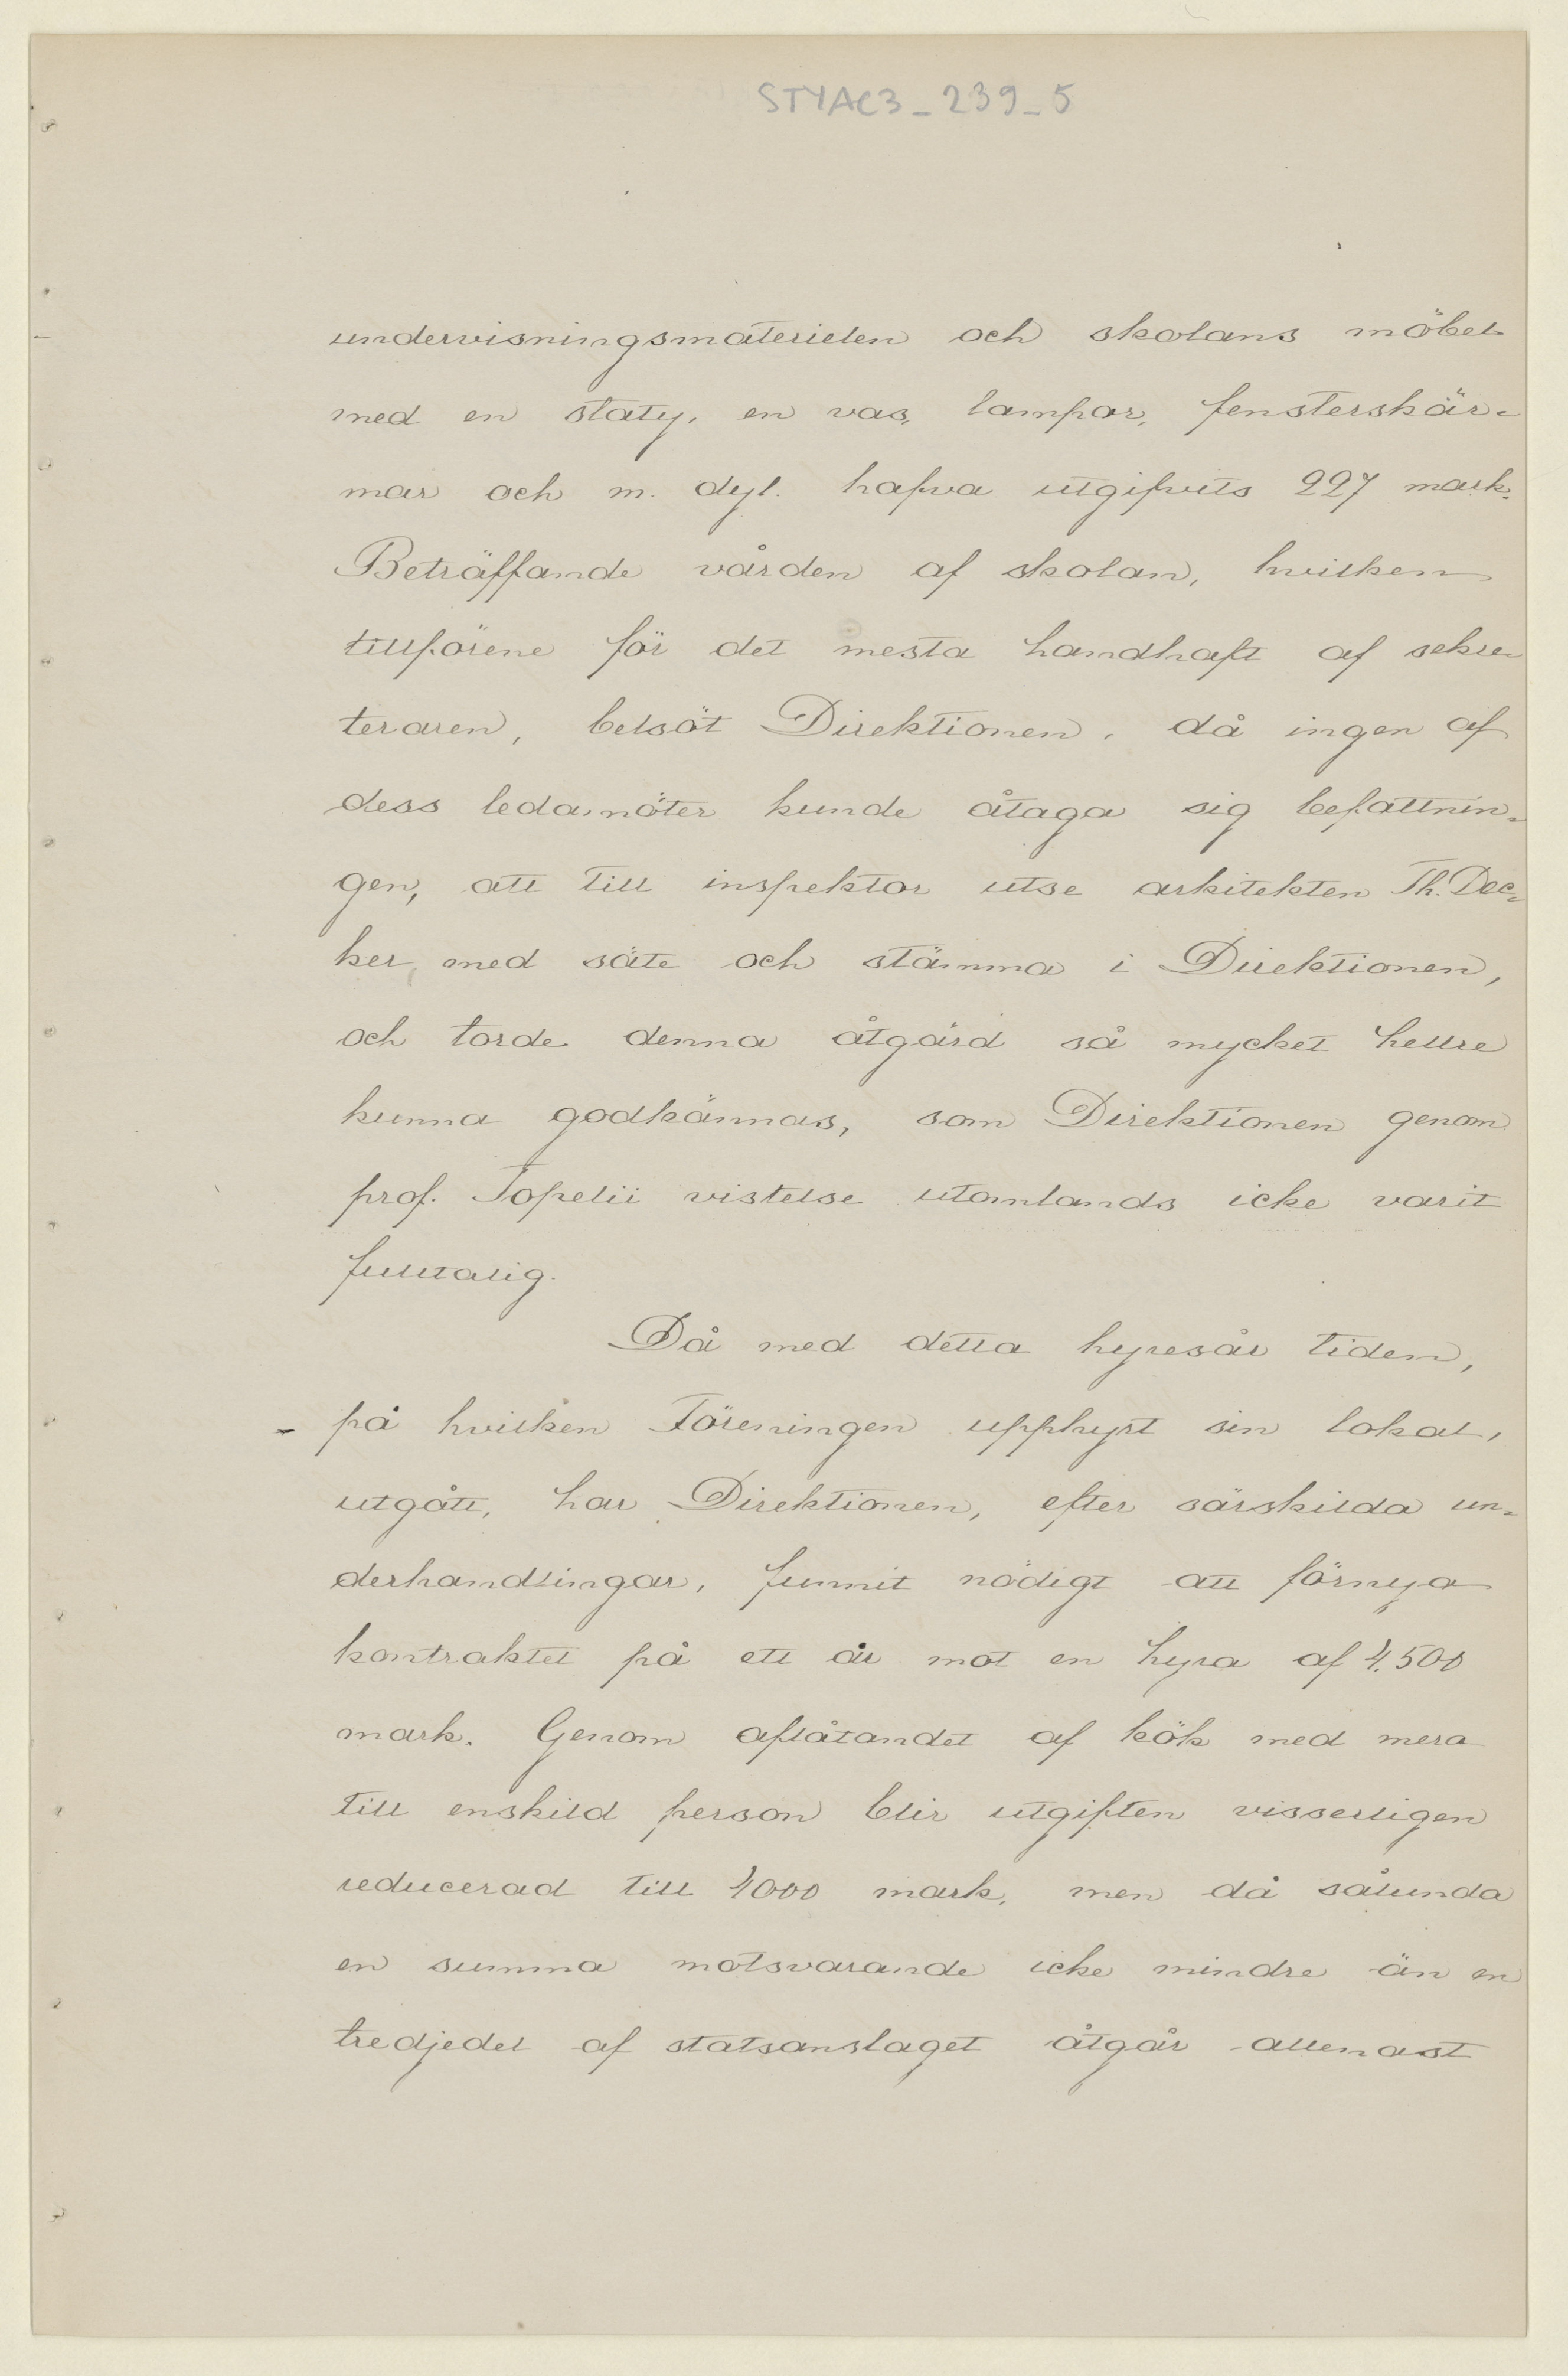 STYAC3_239_5
undervisningsmaterielen och skolans möbel
med en staty, en vas, lampor, fensterskär-
mar och m. dyl. hafva utgifvits 227 mark.
Beträffande vården af skolan, hvilken
tillförene för det mesta handhaft af sekre-
teraren, belsöt Direktionen, då ingen af
dess ledamöter kunde åtaga sig befattnin-
gen, att till inspektor utse arkitekten Th. Dec-
ker, med säte och stämma i Direktionen,
och torde denna åtgärd så mycket hellre
kunna godkännas, som Direktionen genom
prof. Topelii vistelse utomlands icke varit
fulltalig.
Då med detta hyresår tiden,
på hvilken Föreningen upphyrt sin lokal,
utgått, har Direktionen, efter särskilda un-
derhandlingar, funnit nödigt att förnya
kontraktet på ett år mot en hyra af 4,500
mark. Genom aflåtandet af kök med mera
till enskild person blir utgiften visserligen
reducerad till 4000 mark, men då sålunda
en summa motsvarande icke mindre än en
tredjedel af statsanslaget åtgår allenast